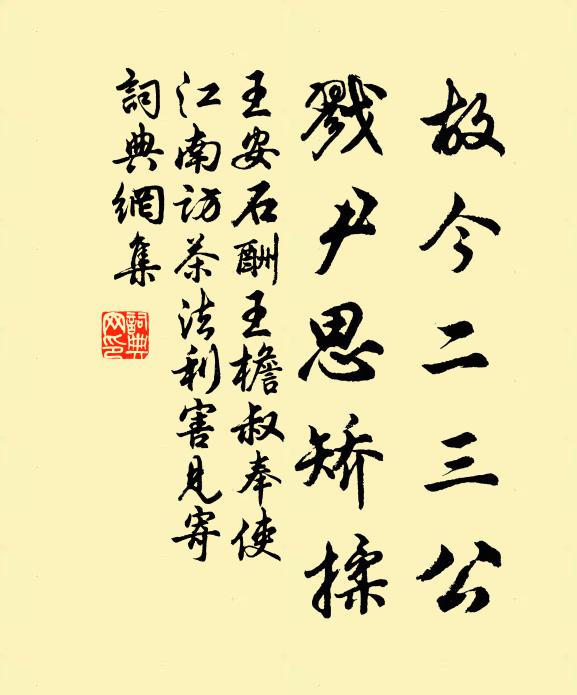 故今二三公
戮尹思矫揉
王安石酬王檐叔奉使
江南访茶法利害见寄
詞典網集
詞典
网印